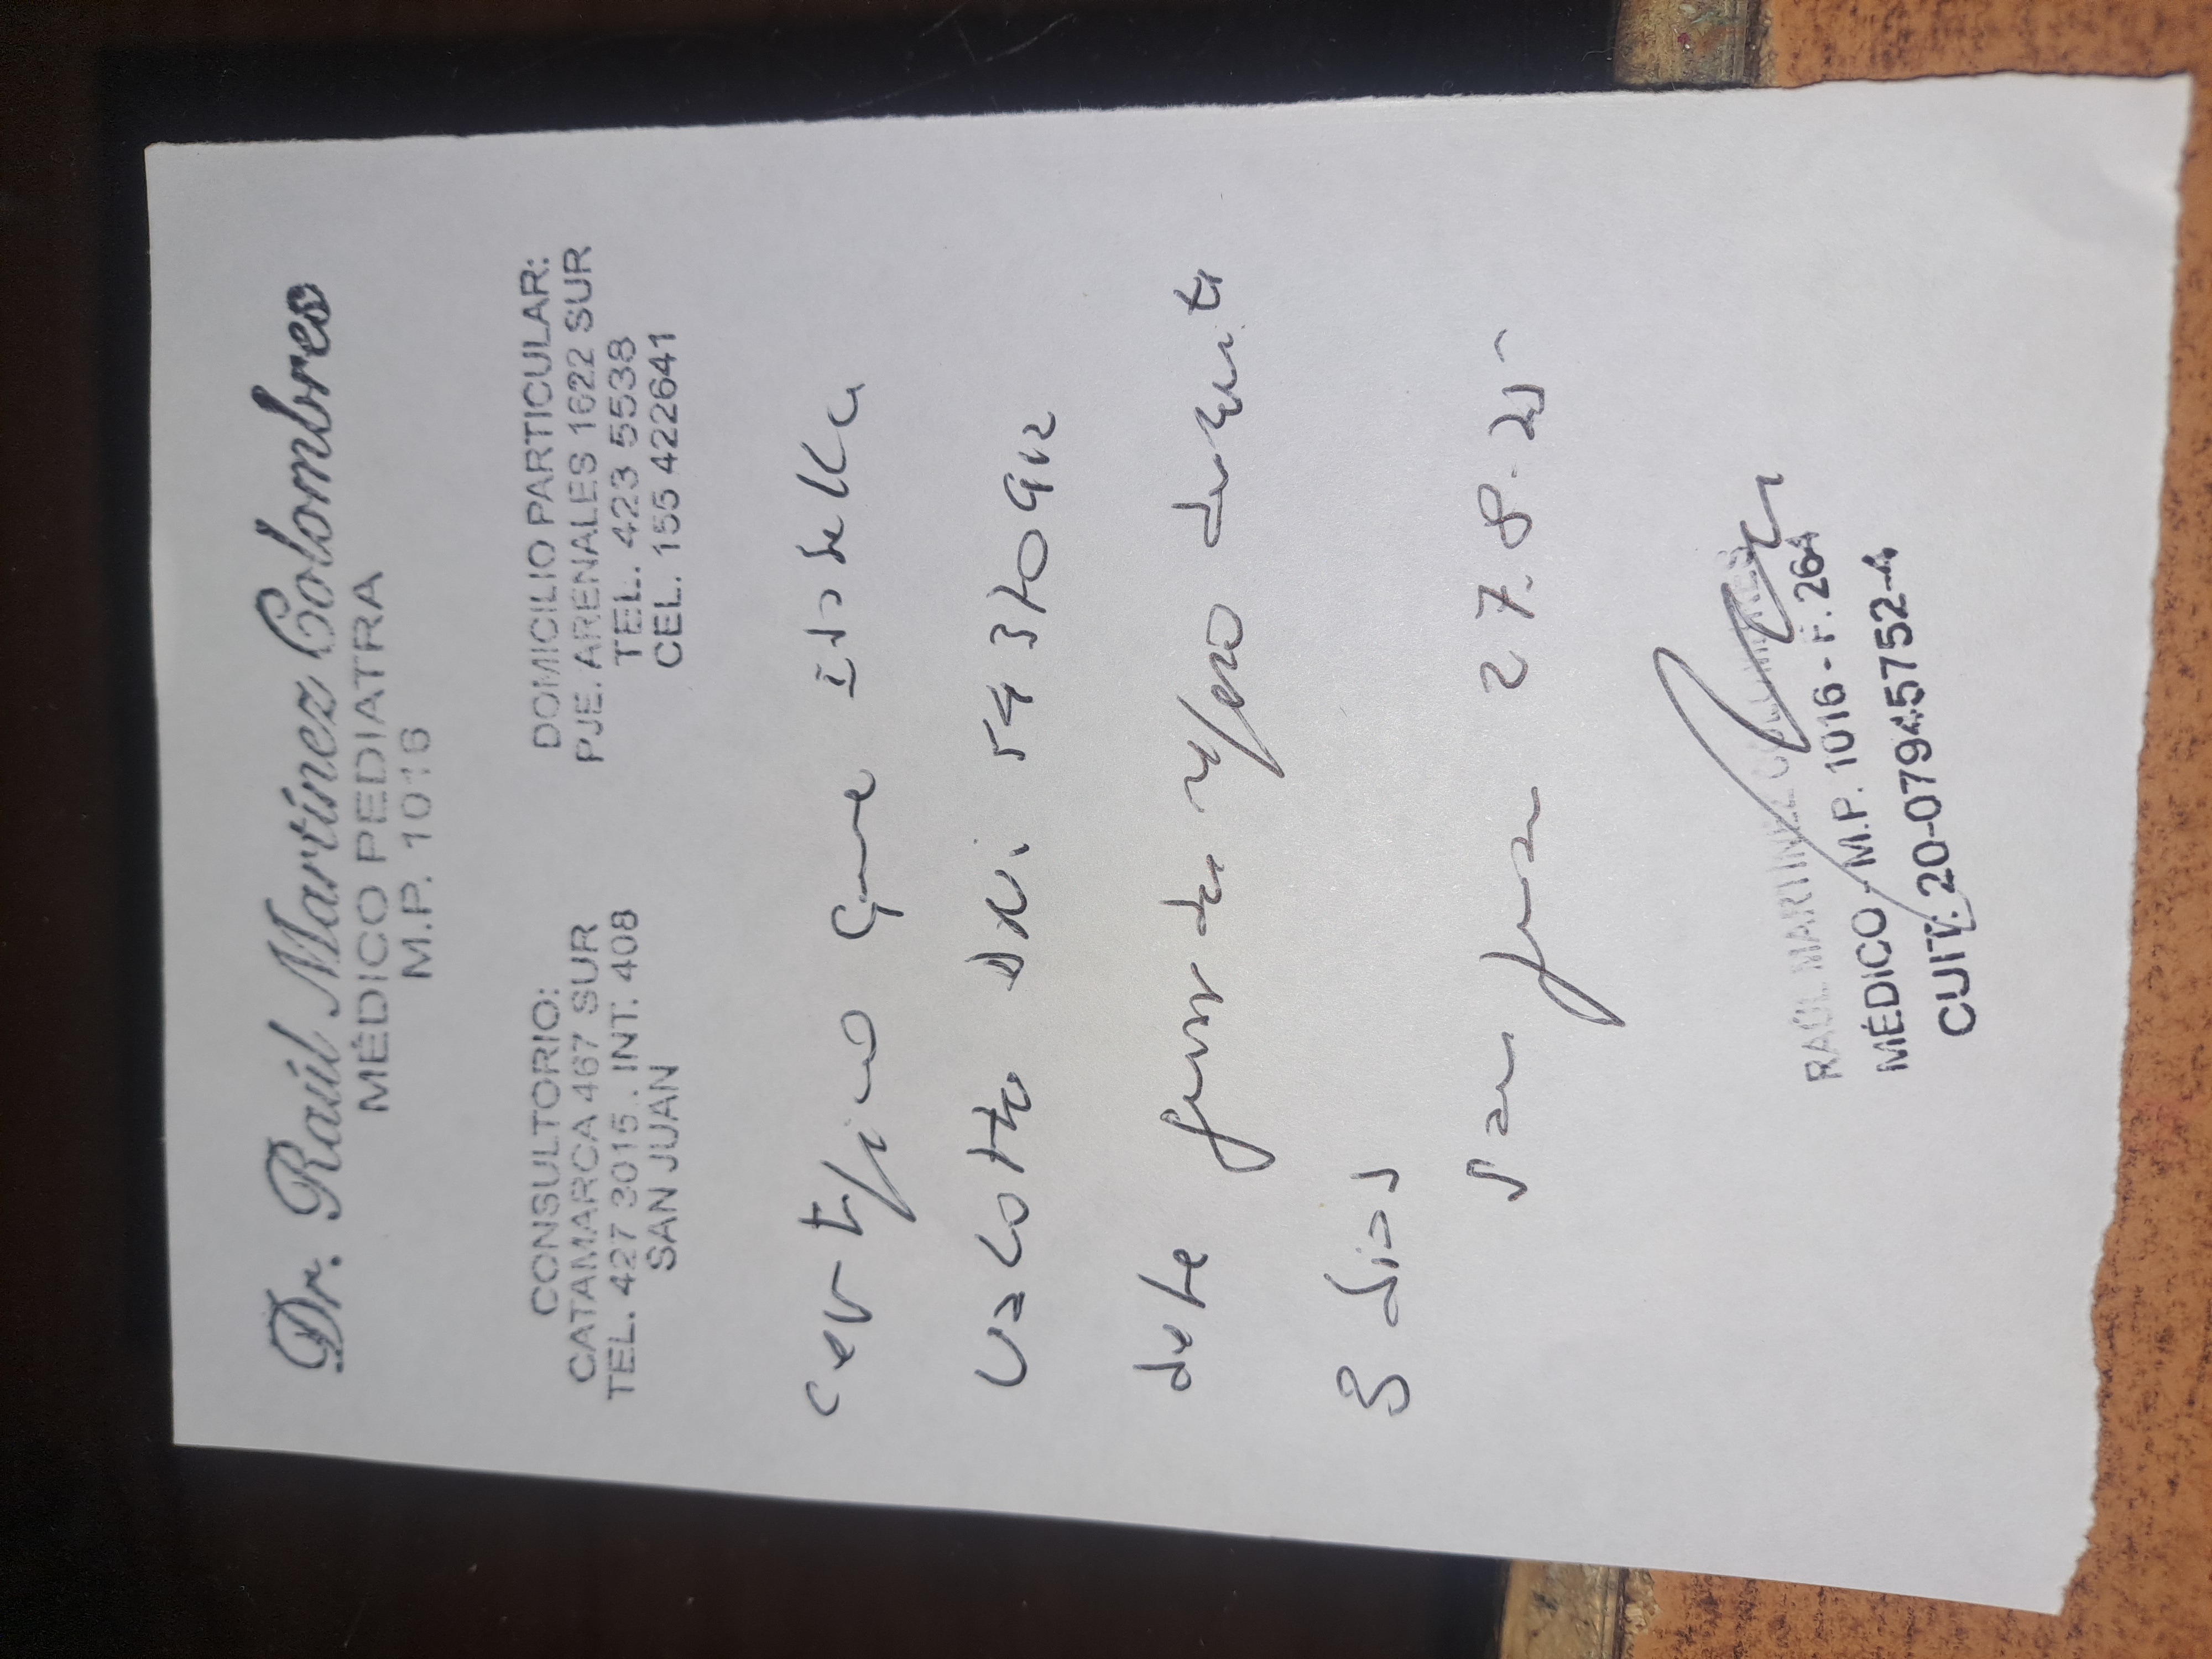 Dr. Raúl Martínez Colombres
MÉDICO PEDIATRA
M.P. 1016
CONSULTORIO:
CATAMARCA 467 SUR
TEL. 427 3015 . INT. 408
SAN JUAN
DOMICILIO PARTICULAR:
PJE. ARENALES 1622 SUR
TEL. 423 5538
CEL. 155 422641
Certifico que Isabella
DNI.
debe guardar reposo durante
3 dias
San Juan 27.8.25
RAÚL MARTINEZ COLOMBRES
MÉDICO - M.P. 1016 - F. 264
CUIT: 20-07945752-4